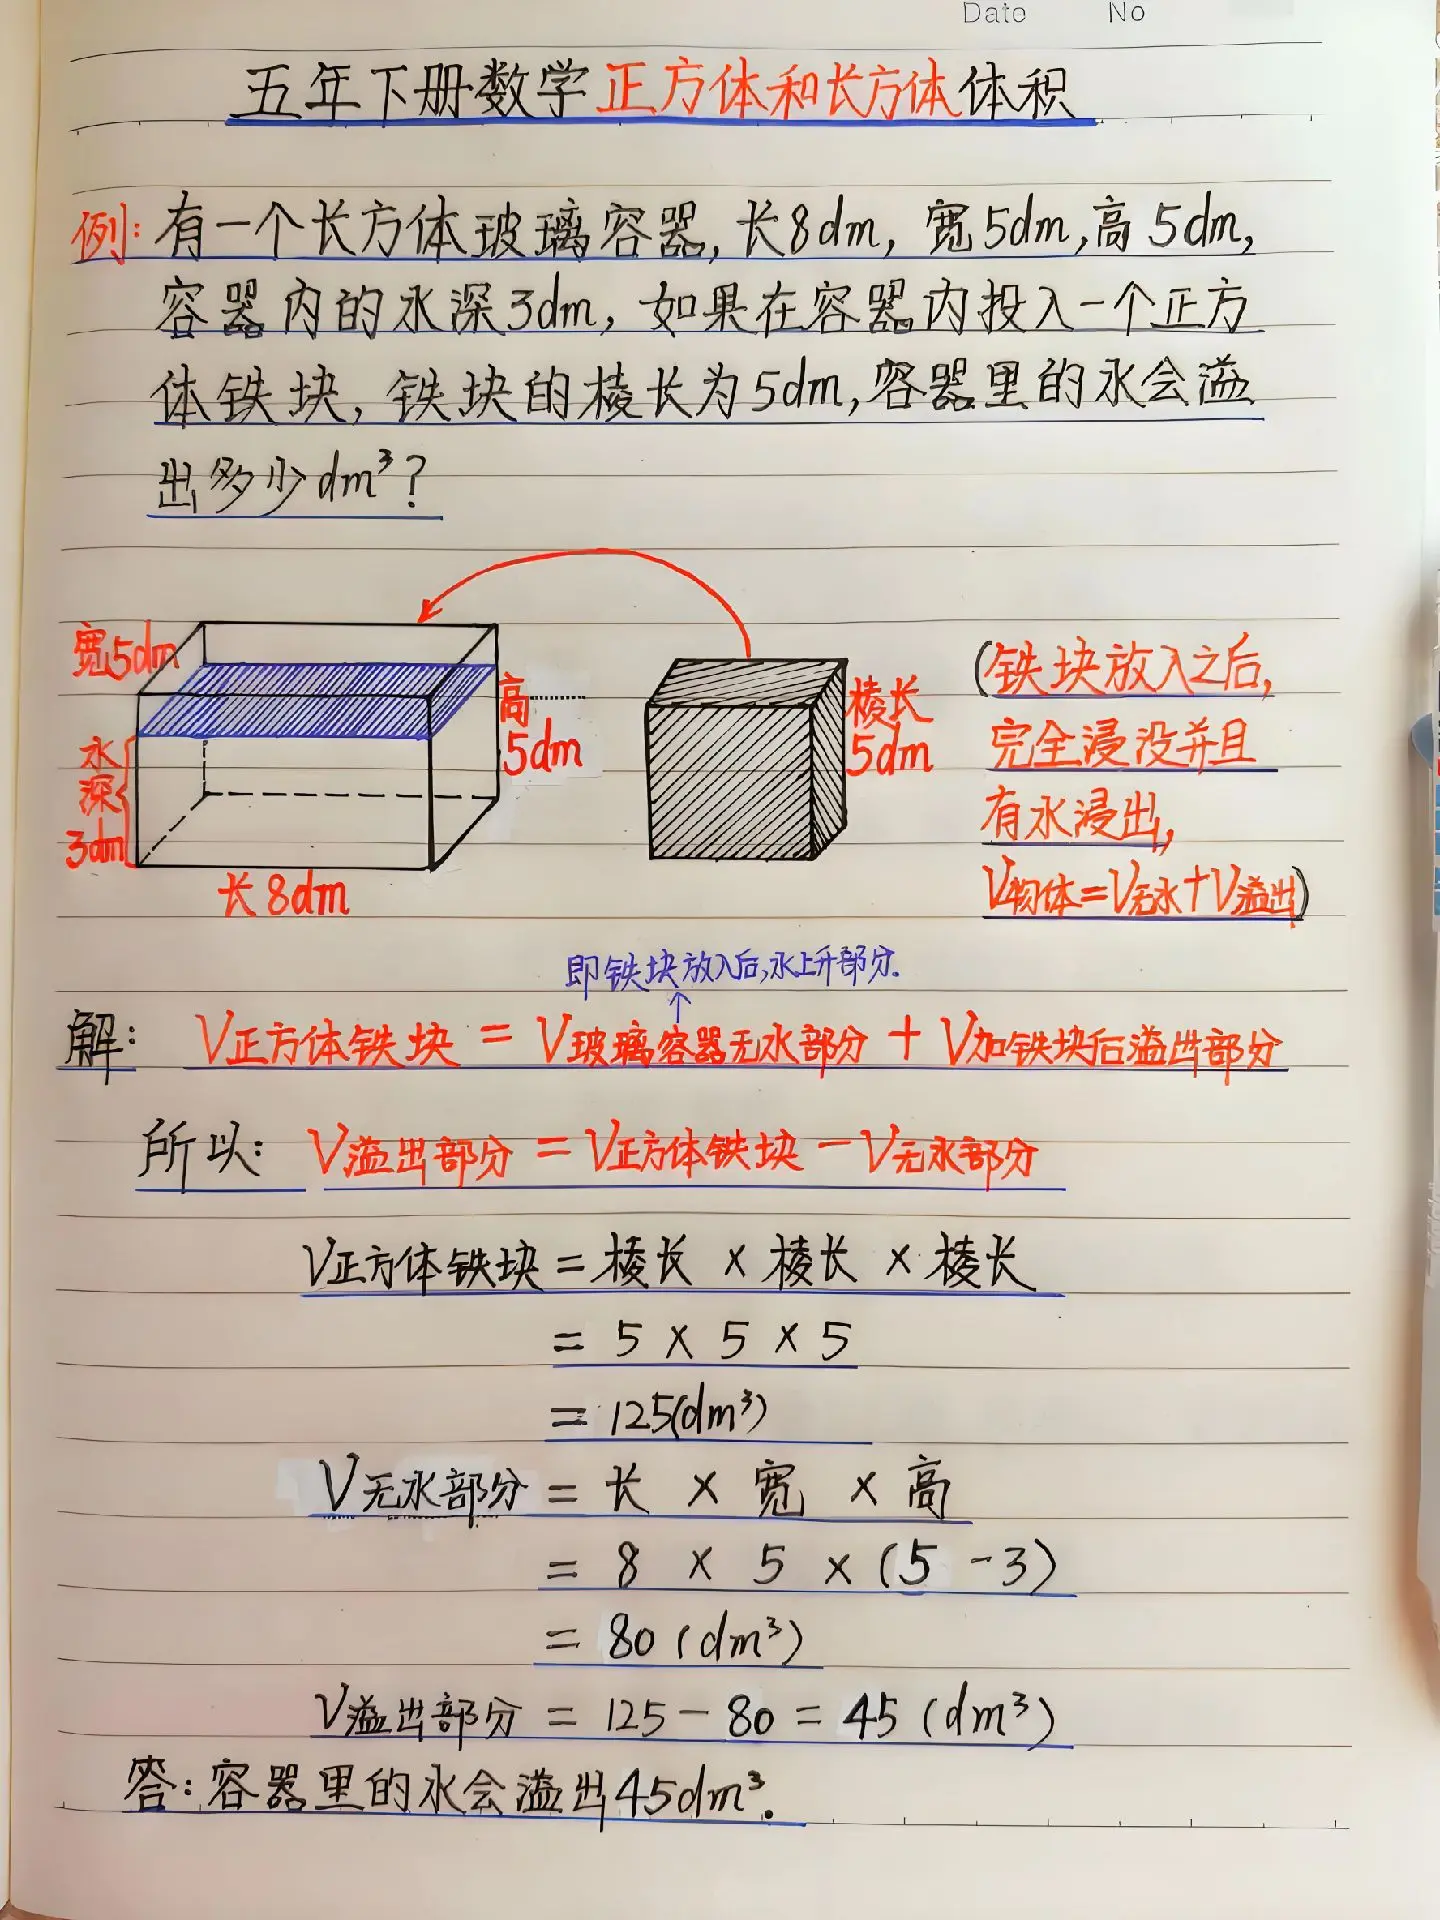 Date No
五年下册数学正方体和长方体体积
例:有一个长方体玻璃容器,长8dm,宽5dm,高5dm,
容器内的水深3dm,如果在容器内投入一个正方
体铁块,铁块的棱长为5dm,容器里的水会溢
出多少dm³?
宽5dm
高
5dm
水
深
3dm
长8dm
棱长
5dm
(铁块放入之后,
完全浸没并且
有水浸出,
V物体=V无水+V溢出)
即铁块放入后,水上升部分.
解: V正方体铁块=V玻璃容器无水部分+V加铁块后溢出部分
所以: V溢出部分=V正方体铁块-V无水部分
V正方体铁块=棱长×棱长×棱长
=5×5×5
=125(dm³)
V无水部分=长×宽×高
=8×5×(5-3)
=80(dm³)
V溢出部分=125-80=45(dm³)
答:容器里的水会溢出45dm³.